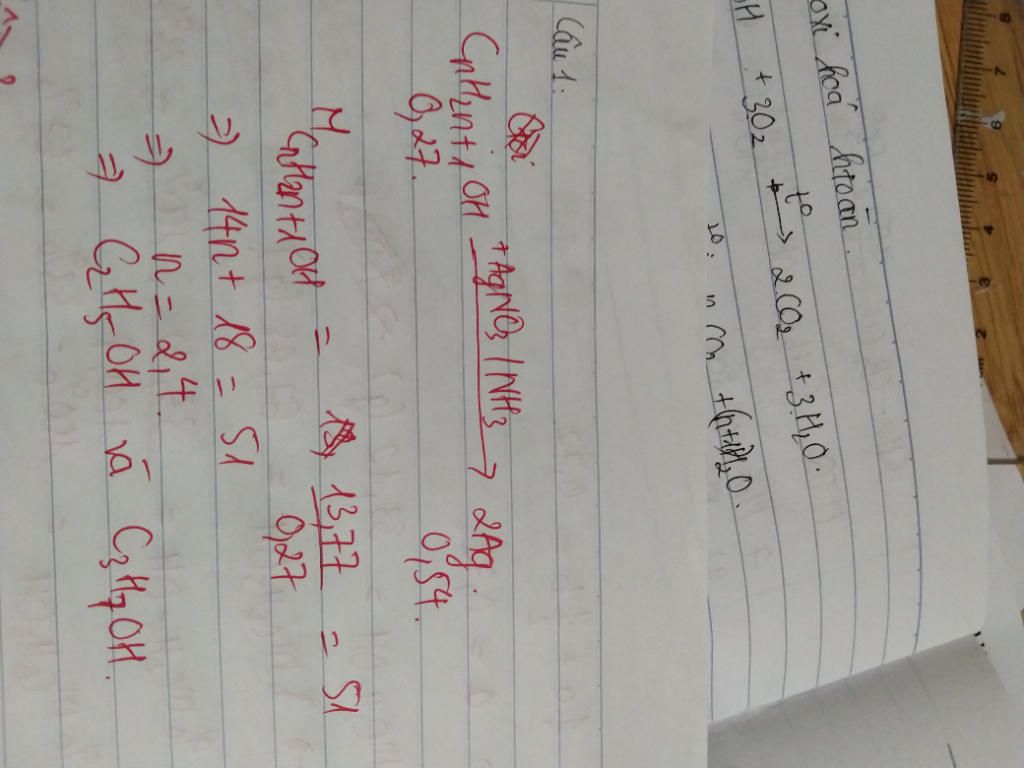 oxi hoá htoàn.
OH + 3O2 t° → 2CO2 + 3H2O.
+(n+1)H2O.
Câu 1:
CnH2n+1OH +AgNO3/NH3 → 2Ag.
0,27. 0,54.
M CnH2n+1OH = 13,77 / 0,27 = 51
=) 14n + 18 = 51
=) n = 2,4.
=) C2H5OH và C3H7OH.